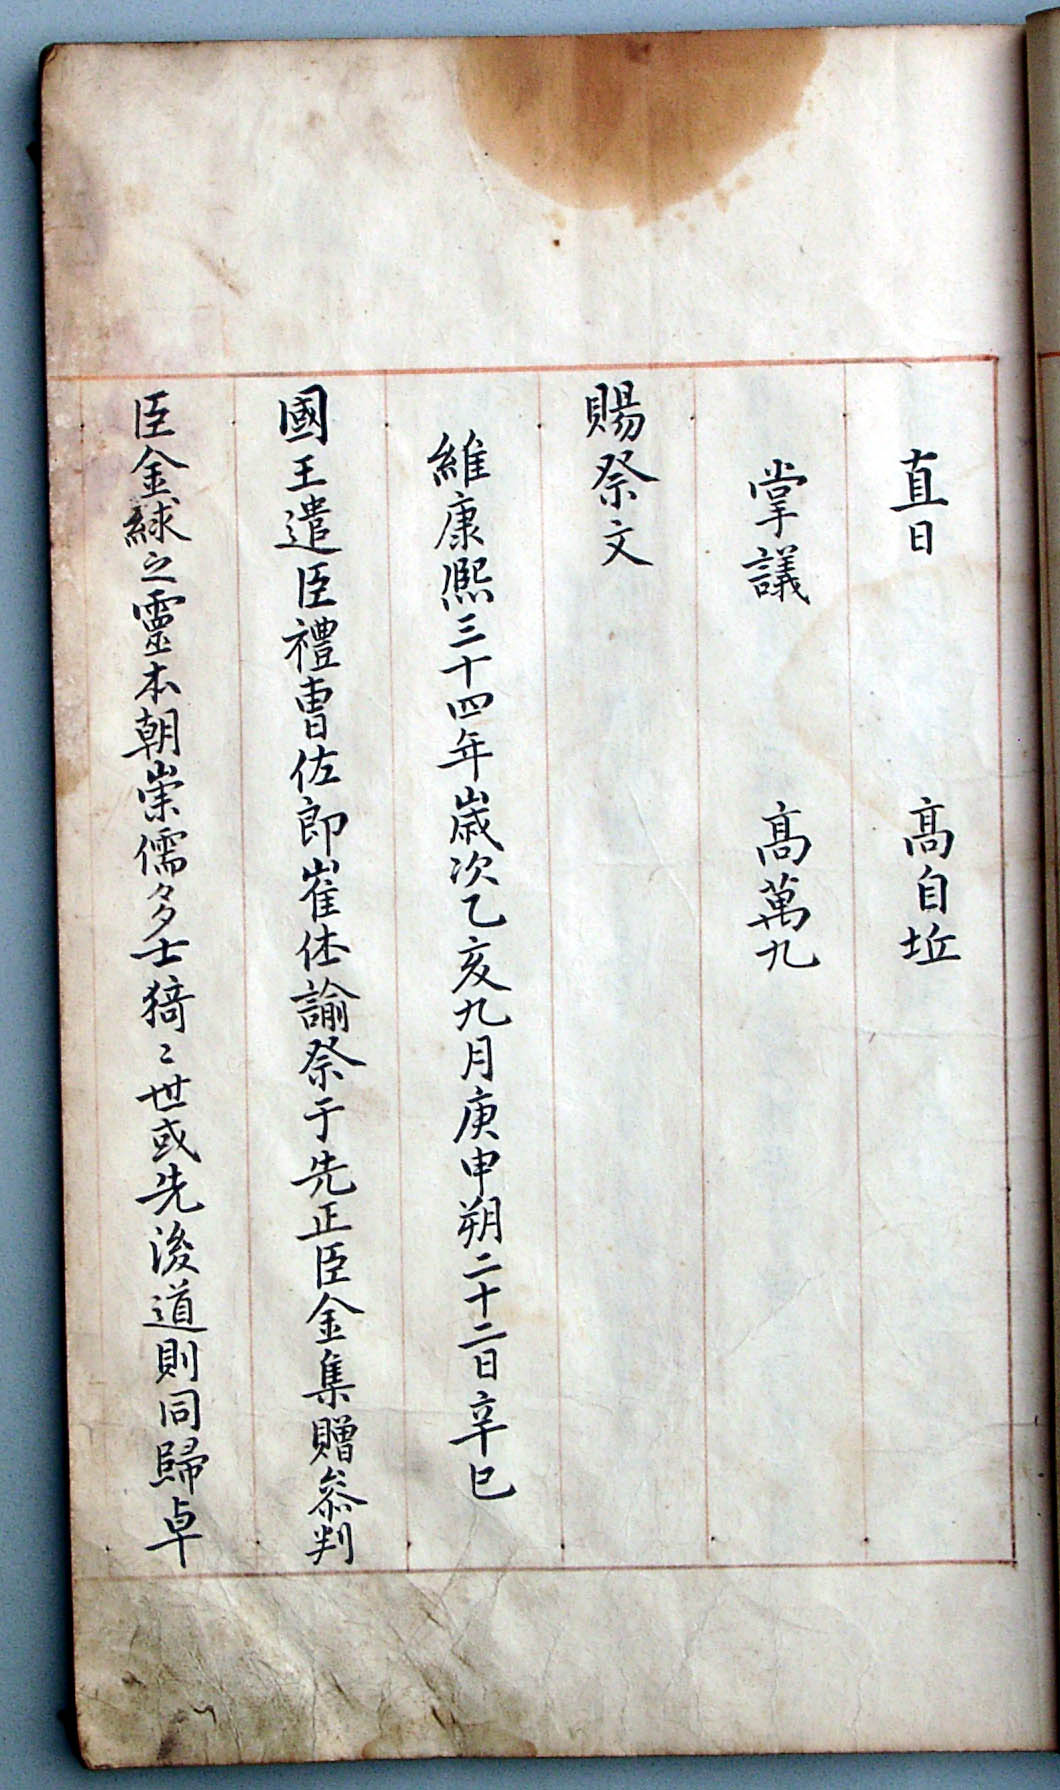 直日 高自坵
掌議 高萬九
賜祭文
維康熙三十四年歲次乙亥九月庚申朔二十二日辛巳
國王遣臣禮曹佐郎崔体諭祭于先正臣金集贈叅判
臣金絿之靈本朝崇儒多士猗〻世或先後道則同歸卓